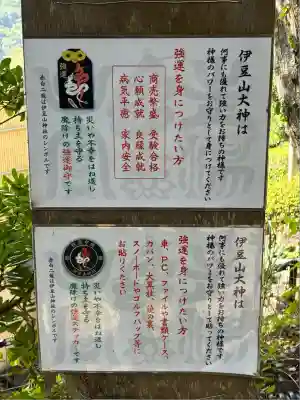 伊豆山大神は
何事にも優れて強い力をお持ちの神様です
神様のパワーをお守りとして身につけてください
強運を身につけたい方
商売繁盛 受験合格
心願成就 良縁成就
病気平癒 家内安全
強運
災いや不幸をはね返し
持ち主を守る
魔除けの強運御守です
赤白二龍は伊豆山神社のシンボルです
伊豆山大神は
何事にも優れて強い力をお持ちの神様です
神様のパワーをお守りとして貼ってください
強運を身につけたい方
車、P.C、ファイルや書類ケース、
カバン、大黒柱、後の裏、
スノーボードやゴルフバッグ等に
お貼りください
災いや不幸をはね返し
持ち主を守る
魔除けの強運ステッカーです
赤白二龍は伊豆山神社のシンボルです